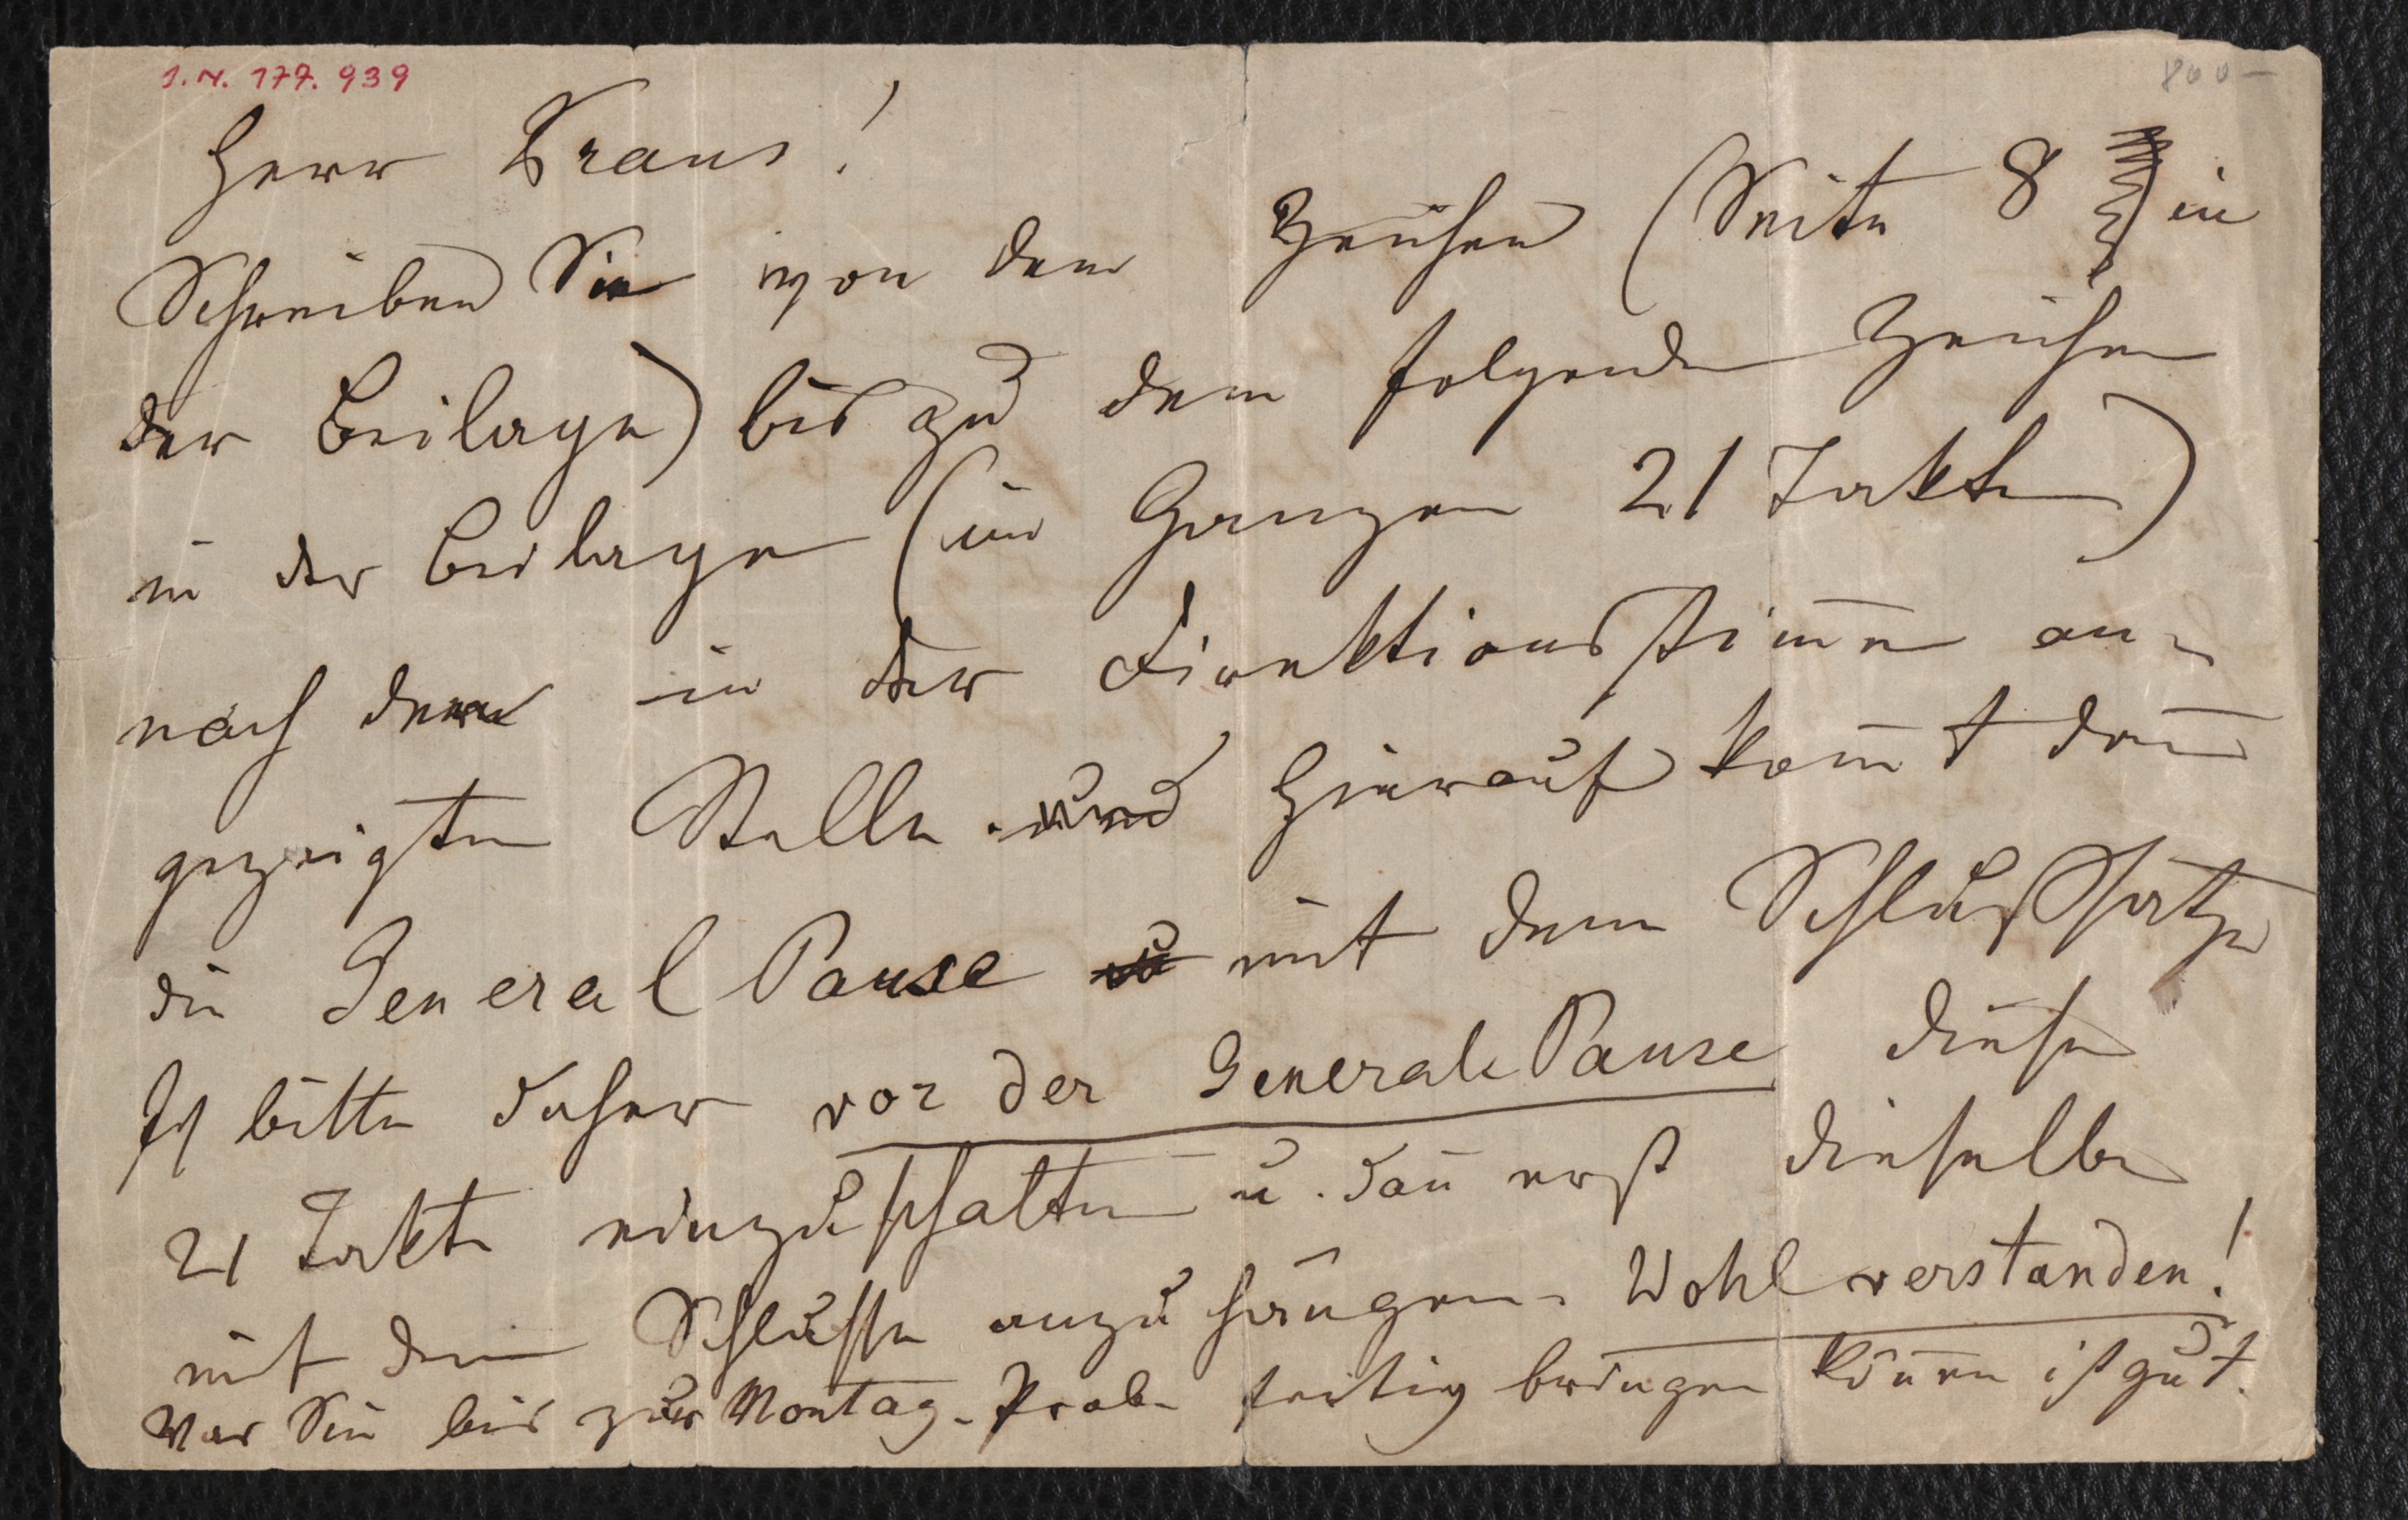 I. N. 177.939
800 –
Herr Kraus!
Schreiben Sie von dem Zeichen (Seite 8 in
der Beilage) bis zu dem folgenden Zeichen
in der Beilage (im Ganzen 21 Takte)
nach der in der Direktionsstim̄e an-
gezeigten Stelle. und Hierauf kom̄t dan̄
die General Pause u mit dem Schlußsatze
Ich bitte daher vor der General Pause diese
21 Takte einzuschalten u. dan̄ erst dieselbe
mit dem Schlusse anzuhängen. Wohl verstanden!
Was Sie bis zur Montag-Probe fertig bringen kön̄en ist gut.